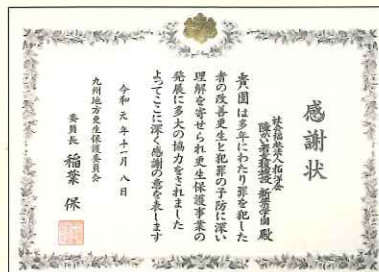 感謝状
社会福祉法人拓洋会
障がい者支援施設 新営学園 殿
貴園は多年にわたり罪を犯した
者の改善更生と犯罪の予防に深い
理解を寄せられ更生保護事業の
発展に多大の協力をされました
よってここに深く感謝の意を表します
令和元年十一月八日
九州地方更生保護委員会
委員長 稲葉 保